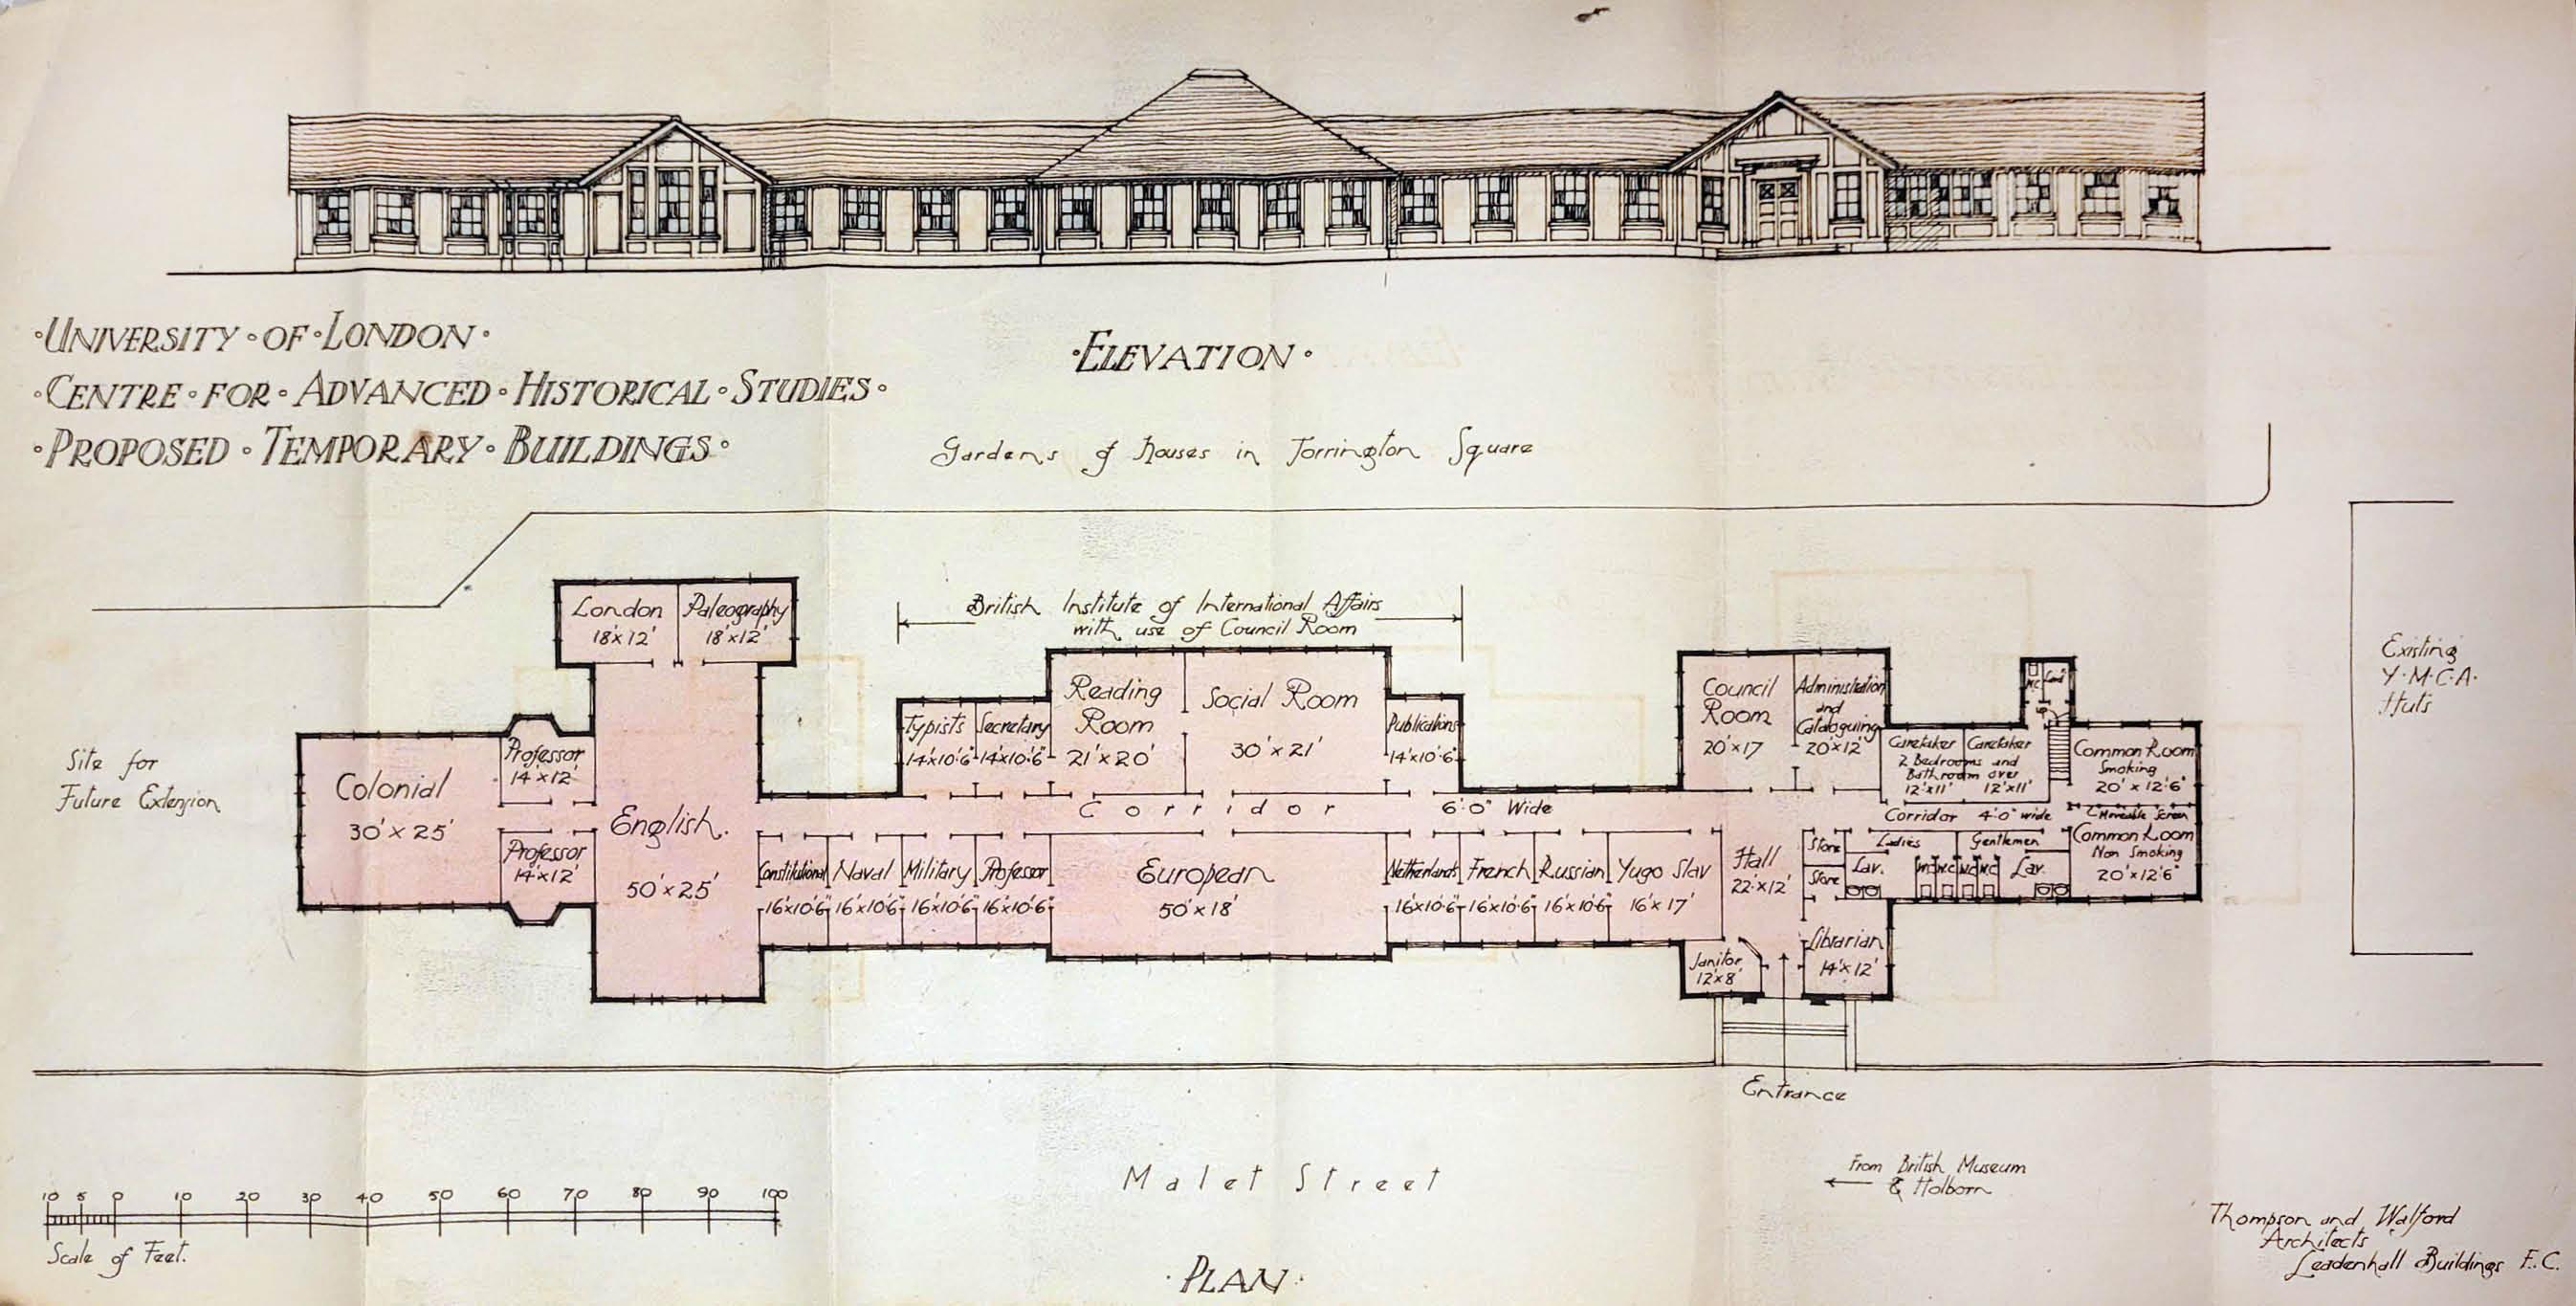 ·UNIVERSITY·OF·LONDON·
·CENTRE·FOR·ADVANCED·HISTORICAL·STUDIES·
·PROPOSED·TEMPORARY·BUILDINGS·
·ELEVATION·
Gardens of houses in Torrington Square
Site for
Future Extension
Colonial
30' x 25'
Professor
14' x 12'
Professor
14' x 12'
London
18' x 12'
Paleography
18' x 12'
English.
50' x 25'
British Institute of International Affairs
with use of Council Room
Typists
14' x 10'.6"
Secretary
14' x 10'.6"
Reading
Room
21' x 20'
Social Room
30' x 21'
Publications
14' x 10'.6"
Corridor 6'.0" Wide
Constitutional
16' x 10'.6"
Naval
16' x 10'.6"
Military
16' x 10'.6"
Professor
16' x 10'.6"
European
50' x 18'
Netherlands
16' x 10'.6"
French
16' x 10'.6"
Russian
16' x 10'.6"
Yugo Slav
16' x 17'
Council
Room
20' x 17
Administration
and
Cataloguing
20' x 12'
Hall
22' x 12'
Janitor
12' x 8'
Librarian
14' x 12'
Store
Store
Caretaker Caretaker
2 Bedrooms and
Bathroom over
12' x 11' 12' x 11'
W.C.
up
Corridor 4'.0" wide
Ladies
Lav.
W.C. W.C. W.C. W.C.
Gentlemen
Lav.
Common Room
Smoking
20' x 12'.6"
Moveable Screen
Common Room
Non Smoking
20' x 12'.6"
Existing
Y.M.C.A.
Huts
Entrance
Malet Street
From British Museum
& Holborn
10 5 0 10 20 30 40 50 60 70 80 90 100
Scale of Feet.
·PLAN·
Thompson and Walford
Architects
Leadenhall Buildings E.C.